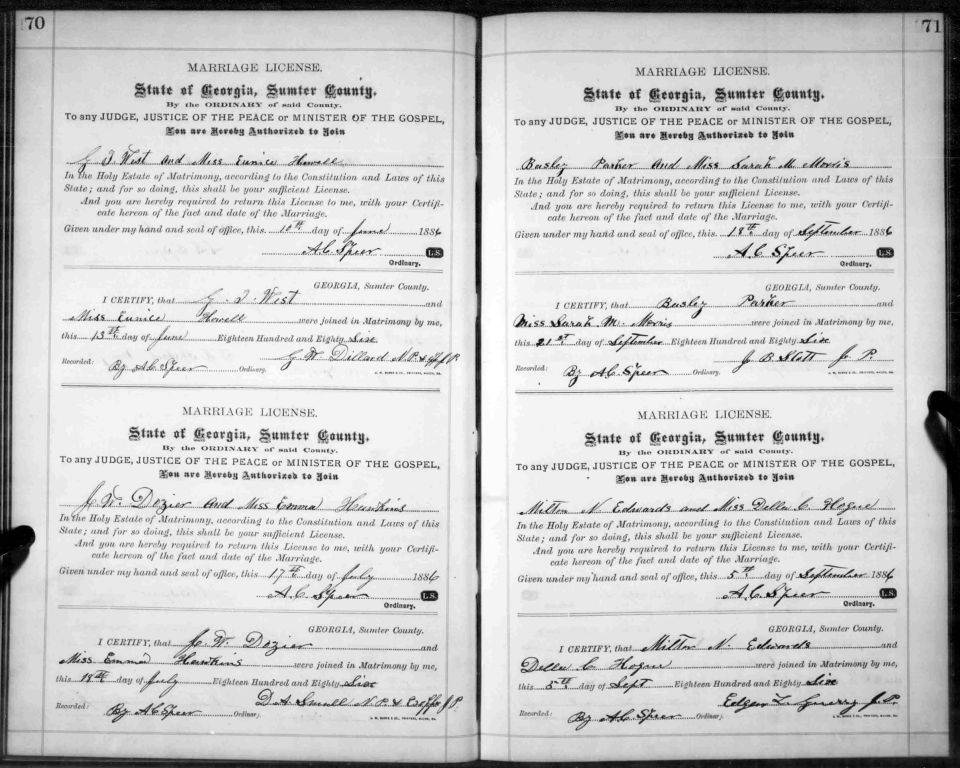 70
MARRIAGE LICENSE.
State of Georgia, Sumter County.
By the ORDINARY of said County.
To any JUDGE, JUSTICE OF THE PEACE or MINISTER OF THE GOSPEL,
You are Hereby Authorized to Join
G T West and Miss Eunice Howell
In the Holy Estate of Matrimony, according to the Constitution and Laws of this
State; and for so doing, this shall be your sufficient License.
And you are hereby required to return this License to me, with your Certifi-
cate hereon of the fact and date of the Marriage.
Given under my hand and seal of office, this 10th day of June 1886
A.C. Speer L.S.
Ordinary.
GEORGIA, Sumter County.
I CERTIFY, that G. T. West and
Miss Eunice Howell were joined in Matrimony by me,
this 13th day of June Eighteen Hundred and Eighty Six
G W Dillard N.P. & J.P.
Recorded: By A.C. Speer Ordinary.
MARRIAGE LICENSE.
State of Georgia, Sumter County.
By the ORDINARY of said County.
To any JUDGE, JUSTICE OF THE PEACE or MINISTER OF THE GOSPEL,
You are Hereby Authorized to Join
W. Dozier and Miss Emma Hawkins
In the Holy Estate of Matrimony, according to the Constitution and Laws of this
State; and for so doing, this shall be your sufficient License.
And you are hereby required to return this License to me, with your Certifi-
cate hereon of the fact and date of the Marriage.
Given under my hand and seal of office, this 17th day of July 1886
A.C. Speer L.S.
Ordinary.
GEORGIA, Sumter County.
I CERTIFY, that W. Dozier and
Miss Emma Hawkins were joined in Matrimony by me,
this 18th day of July Eighteen Hundred and Eighty Six
D A Small N.P. & Exoffo J.P.
Recorded: By A.C. Speer Ordinary.
71
MARRIAGE LICENSE.
State of Georgia, Sumter County.
By the ORDINARY of said County.
To any JUDGE, JUSTICE OF THE PEACE or MINISTER OF THE GOSPEL,
You are Hereby Authorized to Join
Parker and Miss Sarah M. Morris
In the Holy Estate of Matrimony, according to the Constitution and Laws of this
State; and for so doing, this shall be your sufficient License.
And you are hereby required to return this License to me, with your Certifi-
cate hereon of the fact and date of the Marriage.
Given under my hand and seal of office, this 18th day of September 1886
A.C. Speer L.S.
Ordinary.
GEORGIA, Sumter County.
I CERTIFY, that Parker and
Miss Sarah M. Morris were joined in Matrimony by me,
this 21st day of September Eighteen Hundred and Eighty Six
J. P.
Recorded: By A.C. Speer Ordinary.
MARRIAGE LICENSE.
State of Georgia, Sumter County.
By the ORDINARY of said County.
To any JUDGE, JUSTICE OF THE PEACE or MINISTER OF THE GOSPEL,
You are Hereby Authorized to Join
Milton N. Edwards and Miss Della C Hogue
In the Holy Estate of Matrimony, according to the Constitution and Laws of this
State; and for so doing, this shall be your sufficient License.
And you are hereby required to return this License to me, with your Certifi-
cate hereon of the fact and date of the Marriage.
Given under my hand and seal of office, this 5th day of September 1886
A.C. Speer L.S.
Ordinary.
GEORGIA, Sumter County.
I CERTIFY, that Milton N. Edwards and
Della C Hogue were joined in Matrimony by me,
this 5th day of Sept Eighteen Hundred and Eighty Six
Guerry J.P.
Recorded: By A.C. Speer Ordinary.